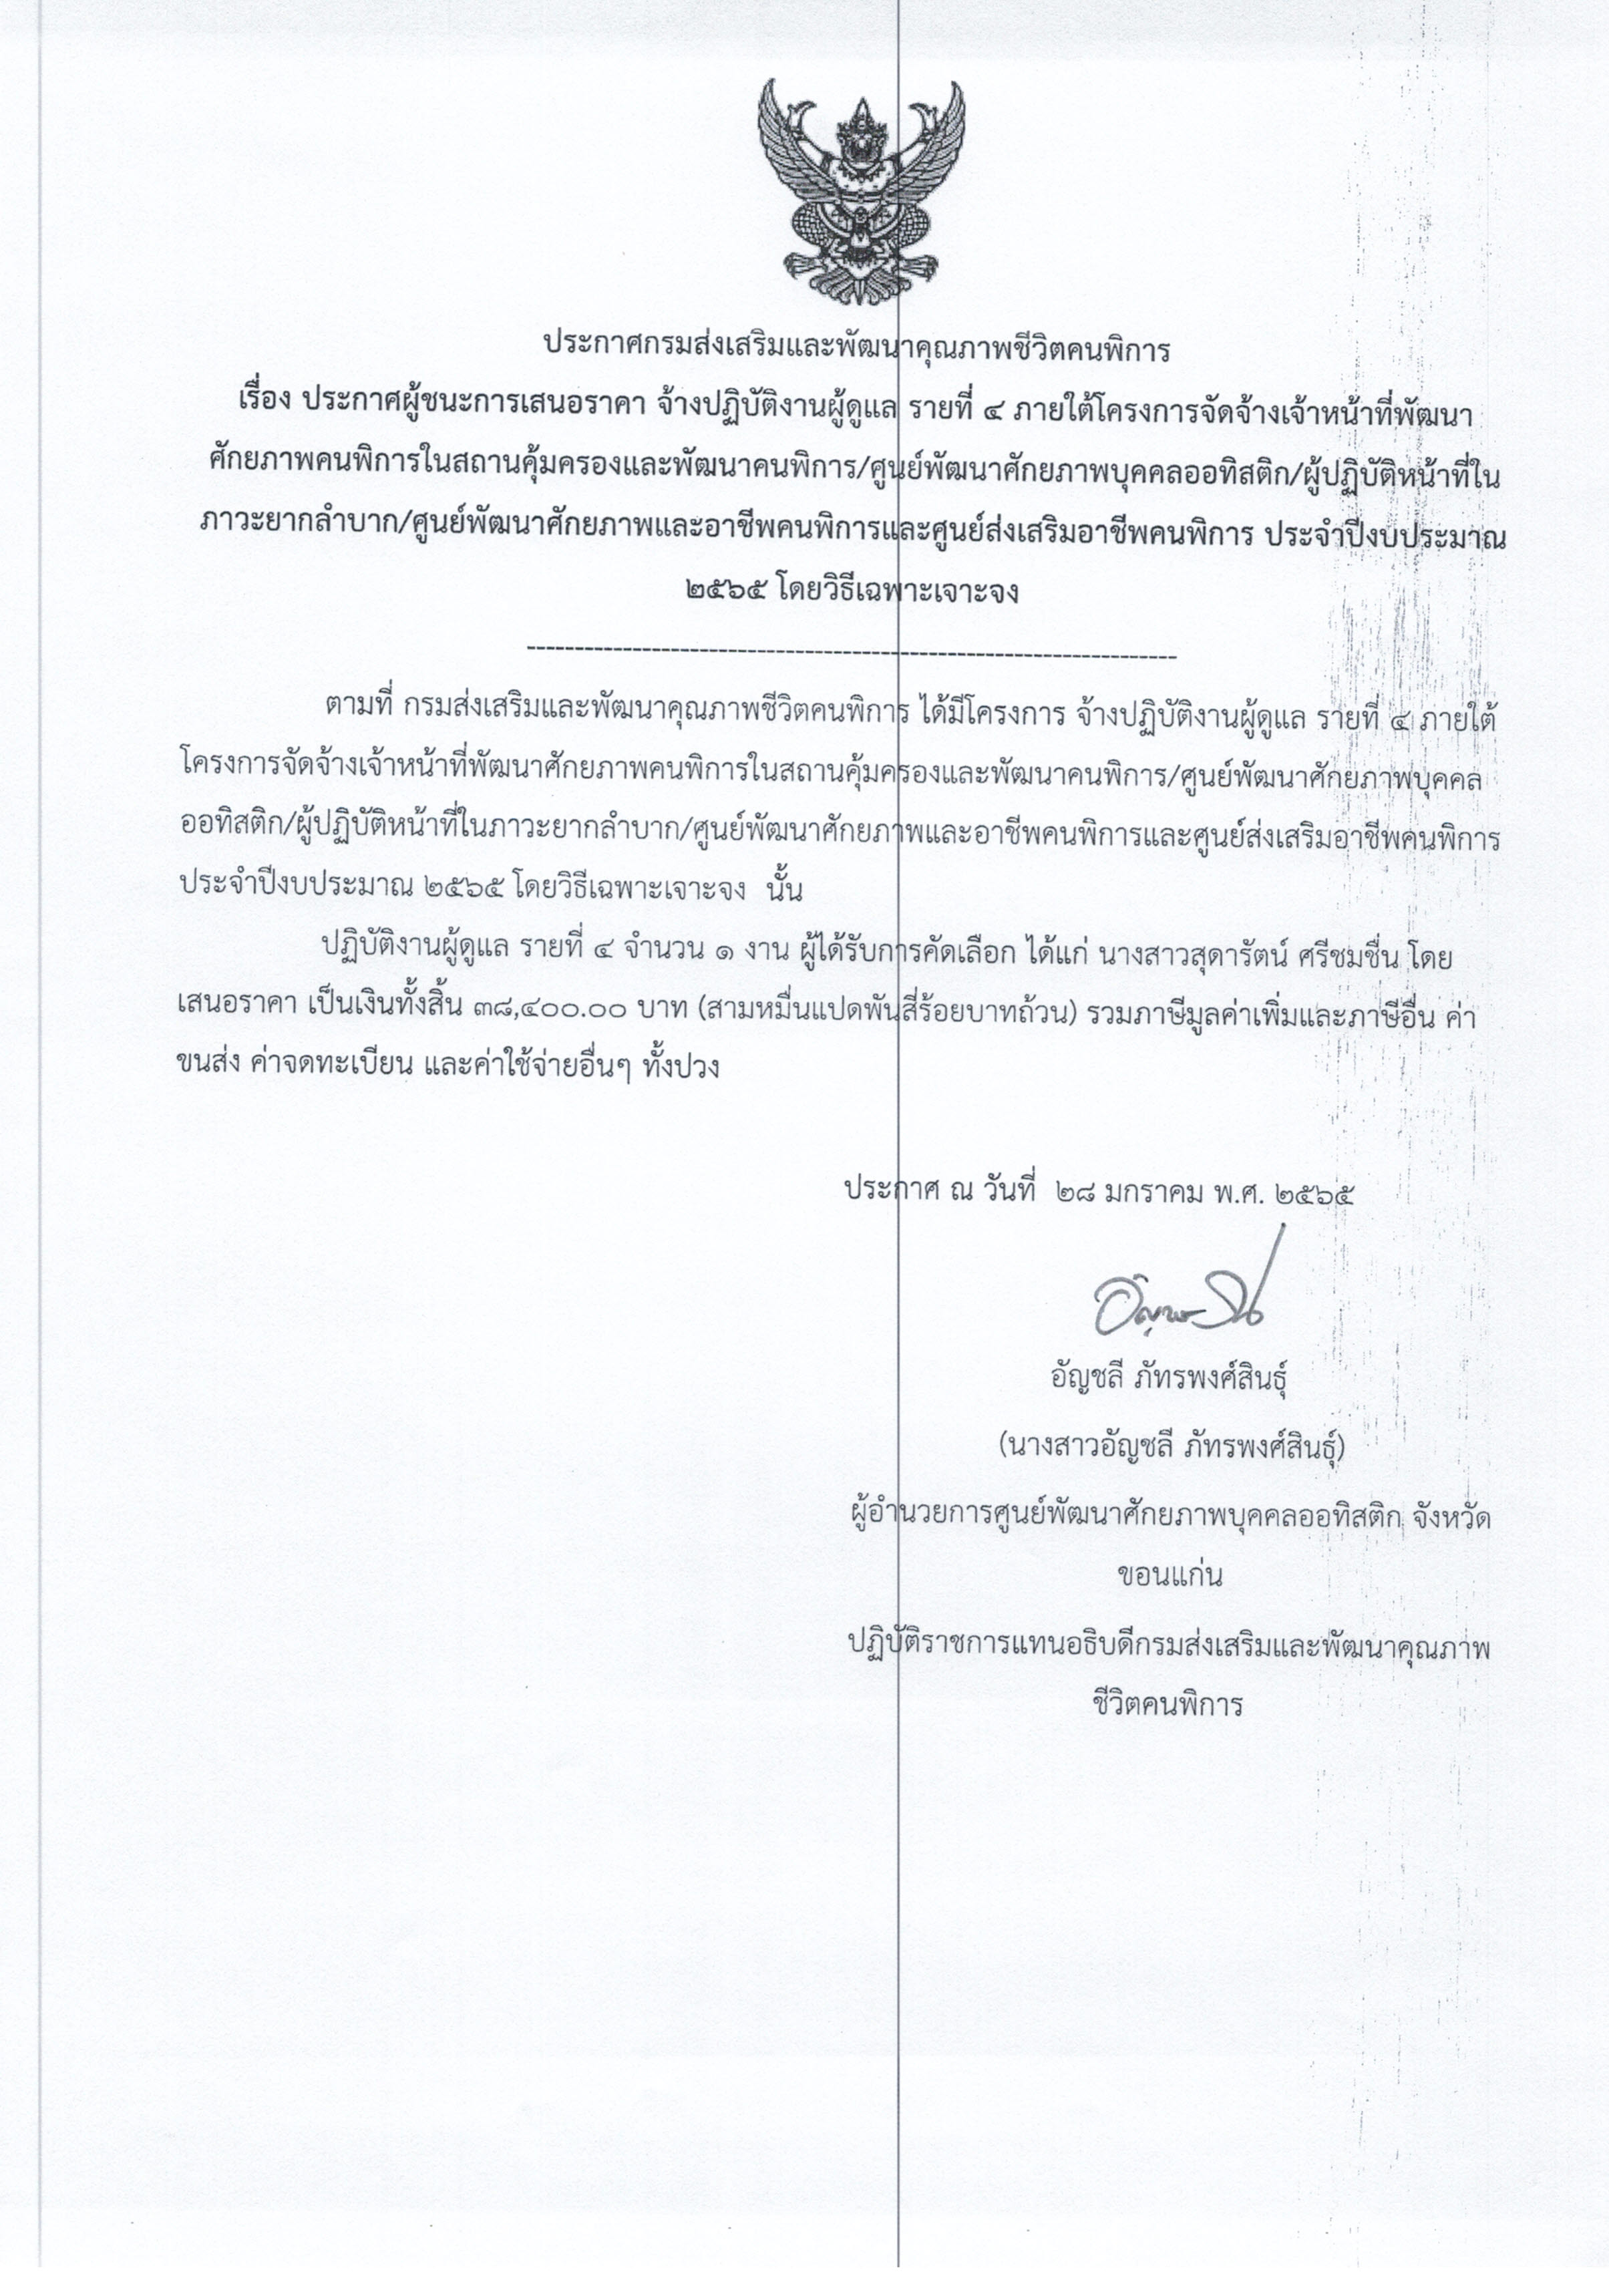 ประกาศกรมส่งเสริมและพัฒนาคุณภาพชีวิตคนพิการ
เรื่อง ประกาศผู้ชนะการเสนอราคา จ้างปฏิบัติงานผู้ดูแล รายที่ ๔ ภายใต้โครงการจัดจ้างเจ้าหน้าที่พัฒนา
ศักยภาพคนพิการในสถานคุ้มครองและพัฒนาคนพิการ/ศูนย์พัฒนาศักยภาพบุคคลออทิสติก/ผู้ปฏิบัติหน้าที่ใน
ภาวะยากลำบาก/ศูนย์พัฒนาศักยภาพและอาชีพคนพิการและศูนย์ส่งเสริมอาชีพคนพิการ ประจำปีงบประมาณ
๒๕๖๕ โดยวิธีเฉพาะเจาะจง
--------------------------------------------------------------------
ตามที่ กรมส่งเสริมและพัฒนาคุณภาพชีวิตคนพิการ ได้มีโครงการ จ้างปฏิบัติงานผู้ดูแล รายที่ ๔ ภายใต้
โครงการจัดจ้างเจ้าหน้าที่พัฒนาศักยภาพคนพิการในสถานคุ้มครองและพัฒนาคนพิการ/ศูนย์พัฒนาศักยภาพบุคคล
ออทิสติก/ผู้ปฏิบัติหน้าที่ในภาวะยากลำบาก/ศูนย์พัฒนาศักยภาพและอาชีพคนพิการและศูนย์ส่งเสริมอาชีพคนพิการ
ประจำปีงบประมาณ ๒๕๖๕ โดยวิธีเฉพาะเจาะจง  นั้น
ปฏิบัติงานผู้ดูแล รายที่ ๔ จำนวน ๑ งาน ผู้ได้รับการคัดเลือก ได้แก่ นางสาวสุดารัตน์ ศรีชมชื่น โดย
เสนอราคา เป็นเงินทั้งสิ้น ๓๘,๔๐๐.๐๐ บาท (สามหมื่นแปดพันสี่ร้อยบาทถ้วน) รวมภาษีมูลค่าเพิ่มและภาษีอื่น ค่า
ขนส่ง ค่าจดทะเบียน และค่าใช้จ่ายอื่นๆ ทั้งปวง
ประกาศ ณ วันที่  ๒๘ มกราคม พ.ศ. ๒๕๖๕
อัญชลี ภัทรพงศ์สินธุ์
(นางสาวอัญชลี ภัทรพงศ์สินธุ์)
ผู้อำนวยการศูนย์พัฒนาศักยภาพบุคคลออทิสติก จังหวัด
ขอนแก่น
ปฏิบัติราชการแทนอธิบดีกรมส่งเสริมและพัฒนาคุณภาพ
ชีวิตคนพิการ